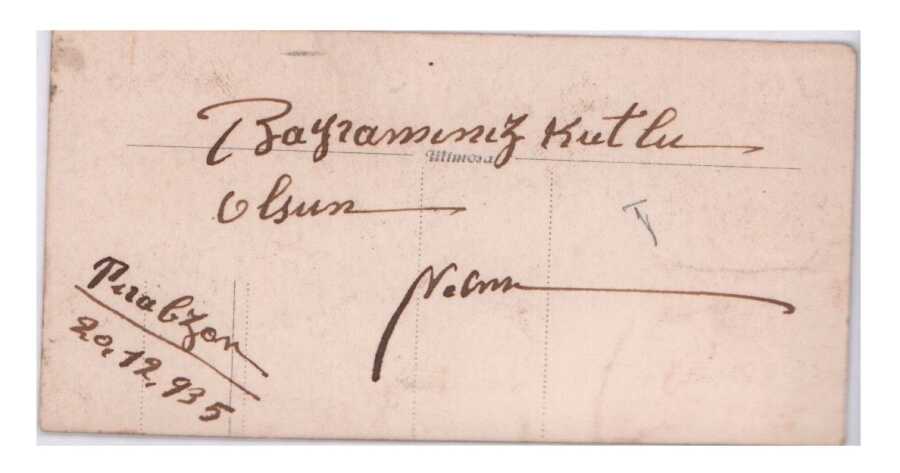 Bayramınız Kutlu
Mimosa
Olsun
Trabzon
20.12.935